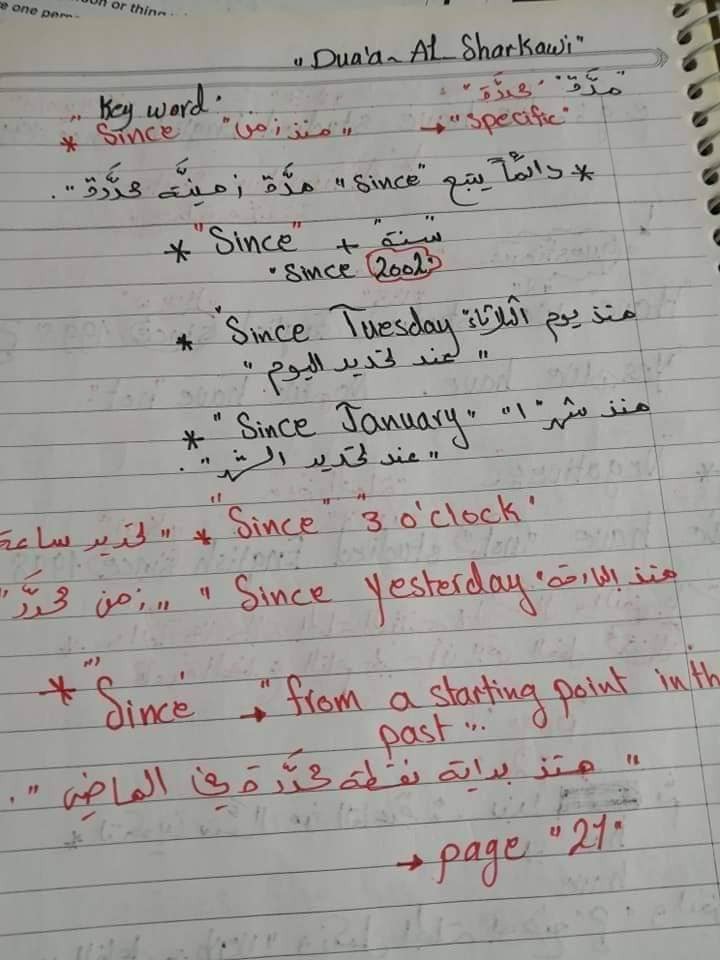 or thing
e one
"Dua'a - Al - Sharkawi"
Key word. "مدَّة" "محدَّدة"
* Since "منذ زمن" → "specific"
* دائماً يتبع "Since" مدَّة زمنيَّة محدَّدة".
* "Since" + "سنة"
. Since 2002.
* "Since Tuesday منذ يوم الثلاثاء"
"عند تحديد اليوم"
* "Since January" منذ شهر "1"
"عند تحديد الشهر".
* "Since" "3 o'clock. "تحديد ساعة
"Since yesterday. منذ البارحة "زمن محدَّد"
* "Since" → "from a starting point in th
past".
"منذ بداية نقطة محدَّدة في الماضي".
→ page "21".